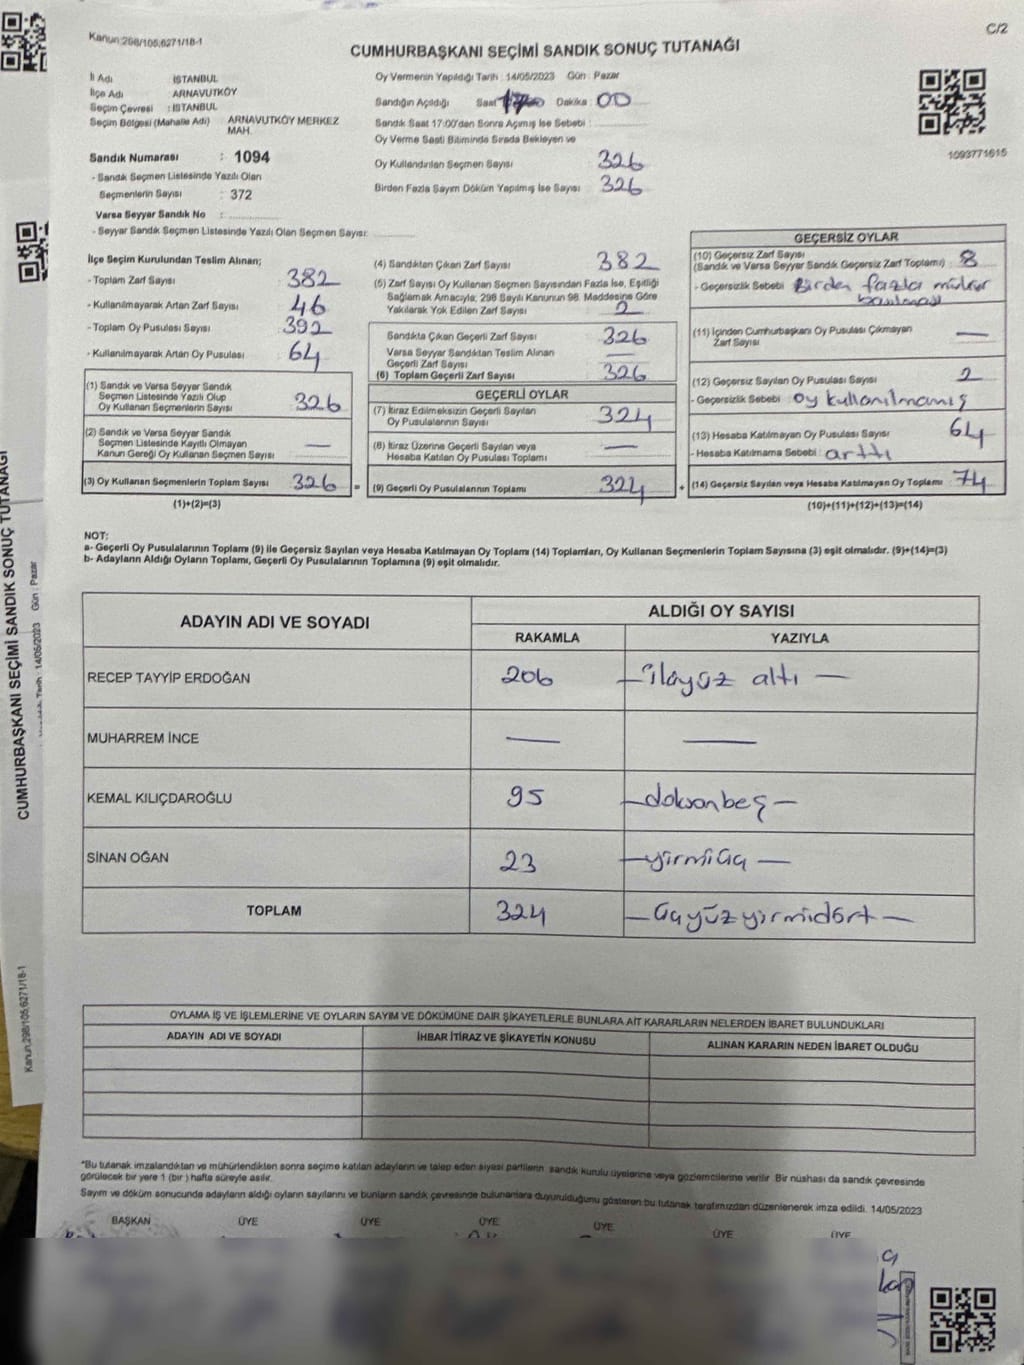 C/2
Kanun:298/105;6271/18-1
CUMHURBAŞKANI SEÇİMİ SANDIK SONUÇ TUTANAĞI
İl Adı : İSTANBUL
İlçe Adı : ARNAVUTKÖY
Seçim Çevresi : İSTANBUL
Seçim Bölgesi (Mahalle Adı) : ARNAVUTKÖY MERKEZ MAH.
Sandık Numarası : 1094
- Sandık Seçmen Listesinde Yazılı Olan
Seçmenlerin Sayısı : 372
Varsa Seyyar Sandık No :
- Seyyar Sandık Seçmen Listesinde Yazılı Olan Seçmen Sayısı:
Oy Vermenin Yapıldığı Tarih : 14/05/2023 Gün : Pazar
Sandığın Açıldığı Saat Dakika : 00
Sandık Saat 17:00'den Sonra Açımış İse Sebebi :
Oy Verme Saati Bitiminde Sırada Bekleyen ve
Oy Kullandırılan Seçmen Sayısı 326
Birden Fazla Sayım Döküm Yapılmış İse Sayısı 326
1093771615
İlçe Seçim Kurulundan Teslim Alınan;
- Toplam Zarf Sayısı : 382
- Kullanılmayarak Artan Zarf Sayısı : 46
- Toplam Oy Pusulası Sayısı : 392
- Kullanılmayarak Artan Oy Pusulası : 64
(1) Sandık ve Varsa Seyyar Sandık
Seçmen Listesinde Yazılı Olup
Oy Kullanan Seçmenlerin Sayısı 326
(2) Sandık ve Varsa Seyyar Sandık
Seçmen Listesinde Kayıtlı Olmayan
Kanun Gereği Oy Kullanan Seçmen Sayısı —
(3) Oy Kullanan Seçmenlerin Toplam Sayısı 326 =
(1)+(2)=(3)
(4) Sandıktan Çıkan Zarf Sayısı 382
(5) Zarf Sayısı Oy Kullanan Seçmen Sayısından Fazla İse, Eşitliği
Sağlamak Amacıyla; 298 Sayılı Kanunun 98. Maddesine Göre
Yakılarak Yok Edilen Zarf Sayısı 2
Sandıkta Çıkan Geçerli Zarf Sayısı 326
Varsa Seyyar Sandıktan Teslim Alınan
Geçerli Zarf Sayısı —
(6) Toplam Geçerli Zarf Sayısı 326
GEÇERLİ OYLAR
(7) İtiraz Edilmeksizin Geçerli Sayılan
Oy Pusulalarının Sayısı 324
(8) İtiraz Üzerine Geçerli Sayılan veya
Hesaba Katılan Oy Pusulası Toplamı —
(9) Geçerli Oy Pusulalarının Toplamı 324 +
GEÇERSİZ OYLAR
(10) Geçersiz Zarf Sayısı
(Sandık ve Varsa Seyyar Sandık Geçersiz Zarf Toplamı) : 8
- Geçersizlik Sebebi Birden fazla mühür
basılması
(11) İçinden Cumhurbaşkanı Oy Pusulası Çıkmayan
Zarf Sayısı —
(12) Geçersiz Sayılan Oy Pusulası Sayısı 2
- Geçersizlik Sebebi : Oy kullanılmamış
(13) Hesaba Katılmayan Oy Pusulası Sayısı 64
- Hesaba Katılmama Sebebi : arttı
(14) Geçersiz Sayılan veya Hesaba Katılmayan Oy Toplamı 74
(10)+(11)+(12)+(13)=(14)
NOT:
a- Geçerli Oy Pusulalarının Toplamı (9) ile Geçersiz Sayılan veya Hesaba Katılmayan Oy Toplamı (14) Toplamları, Oy Kullanan Seçmenlerin Toplam Sayısına (3) eşit olmalıdır. (9)+(14)=(3)
b- Adayların Aldığı Oyların Toplamı, Geçerli Oy Pusulalarının Toplamına (9) eşit olmalıdır.
ADAYIN ADI VE SOYADI ALDIĞI OY SAYISI
RAKAMLA YAZIYLA
RECEP TAYYİP ERDOĞAN 206 — ikiyüz altı —
MUHARREM İNCE — —
KEMAL KILIÇDAROĞLU 95 — doksanbeş —
SİNAN OĞAN 23 — yirmiüç —
TOPLAM 324 — üçyüzyirmidört —
OYLAMA İŞ VE İŞLEMLERİNE VE OYLARIN SAYIM VE DÖKÜMÜNE DAİR ŞİKAYETLERLE BUNLARA AİT KARARLARIN NELERDEN İBARET BULUNDUKLARI
ADAYIN ADI VE SOYADI İHBAR İTİRAZ VE ŞİKAYETİN KONUSU ALINAN KARARIN NEDEN İBARET OLDUĞU
*Bu tutanak imzalandıktan ve mühürlendikten sonra seçime katılan adayların ve talep eden siyasi partilerin sandık kurulu üyelerine veya gözlemcilerine verilir. Bir nüshası da sandık çevresinde
görülecek bir yere 1 (bir) hafta süreyle asılır.
Sayım ve döküm sonucunda adayların aldığı oyların sayılarını ve bunların sandık çevresinde bulunanlara duyurulduğunu gösteren bu tutanak tarafımızdan düzenlenerek imza edildi. 14/05/2023
BAŞKAN ÜYE ÜYE ÜYE ÜYE ÜYE ÜYE
CUMHURBAŞKANI SEÇİMİ SANDIK SONUÇ TUTANAĞI
Tarih : 14/05/2023 Gün : Pazar
Kanun:298/105;6271/18-1